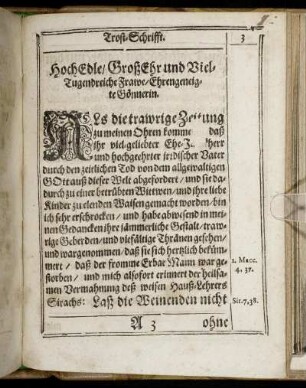 Trost-Schrifft.
3
HochEdle/ GroßEhr und Viel-
Tugendreiche Frawe/ Ehrengeneig-
te Gönnerin.
ALs die trawrige Zeitung
zu meinen Ohren komme daß
Ihr viel-geliebter Ehe-Herr
und hochgeehrter irdischer Vater
durch den zeitlichen Tod von dem allgewaltigen
GOtt auß dieser Welt abgefordert/ und sie da-
durch zu einer betrübten Wittwen/ und ihre liebe
Kinder zu elenden Waisen gemacht worden/ bin
ich sehr erschrocken/ und habe abwesend in mei-
nen Gedancken ihre jämmerliche Gestalt/ traw-
rige Geberden/ und vielfältige Thränen gesehen/
und wargenommen/ daß sie sich hertzlich beküm-
mert/ daß der fromme Erbar Mann war ge-
storben/ und mich alsofort erinnert der heilsa-
men Vermahnung deß weisen Hauß-Lehrers
Sirachs: Laß die Weinenden nicht
1. Macc.
4. 37.
Sir. 7, 38.
A 3
ohne